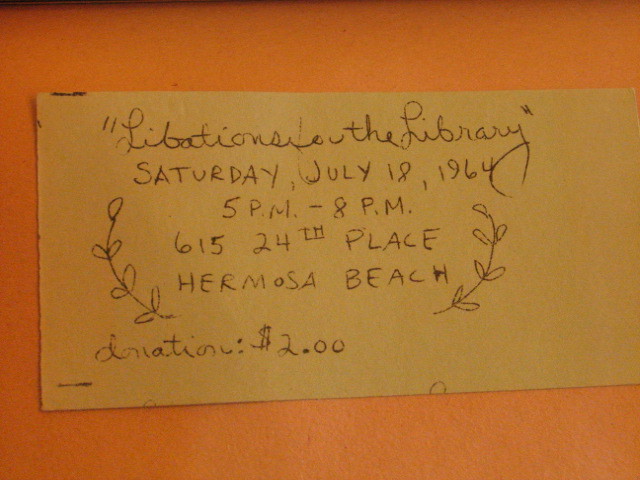 "Libations for the Library"
SATURDAY, JULY 18, 1964
5 P.M. - 8 P.M.
615 24TH PLACE
HERMOSA BEACH
donation: $2.00